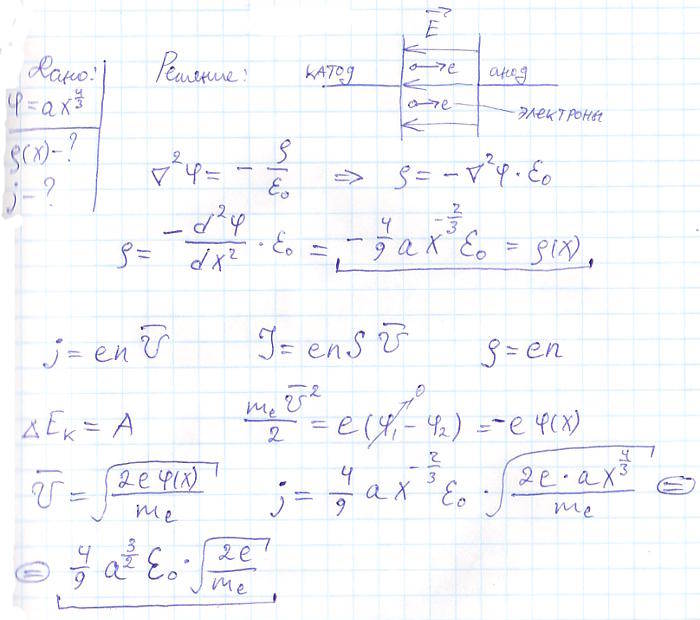 E⃗
Дано: Решение: КАТОД e анод
φ = ax^{4/3} e ЭЛЕКТРОНЫ
ρ(x) - ?
j - ?
∇²φ = - ρ/ε₀ ⇒ ρ = -∇²φ · ε₀
ρ = -d²φ/dx² · ε₀ = -4/9 a x^{-2/3} ε₀ = ρ(x)
j = en v̄ J = enS v̄ ρ = en
ΔE_K = A m_e v̄²/2 = e(φ₁ - φ₂) = -eφ(x)
0
v̄ = √(2eφ(x)/m_e) j = 4/9 a x^{-2/3} ε₀ · √(2e · ax^{4/3}/m_e) =
= 4/9 a^{3/2} ε₀ · √(2e/m_e)